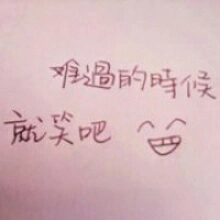 难過的時候
就笑吧